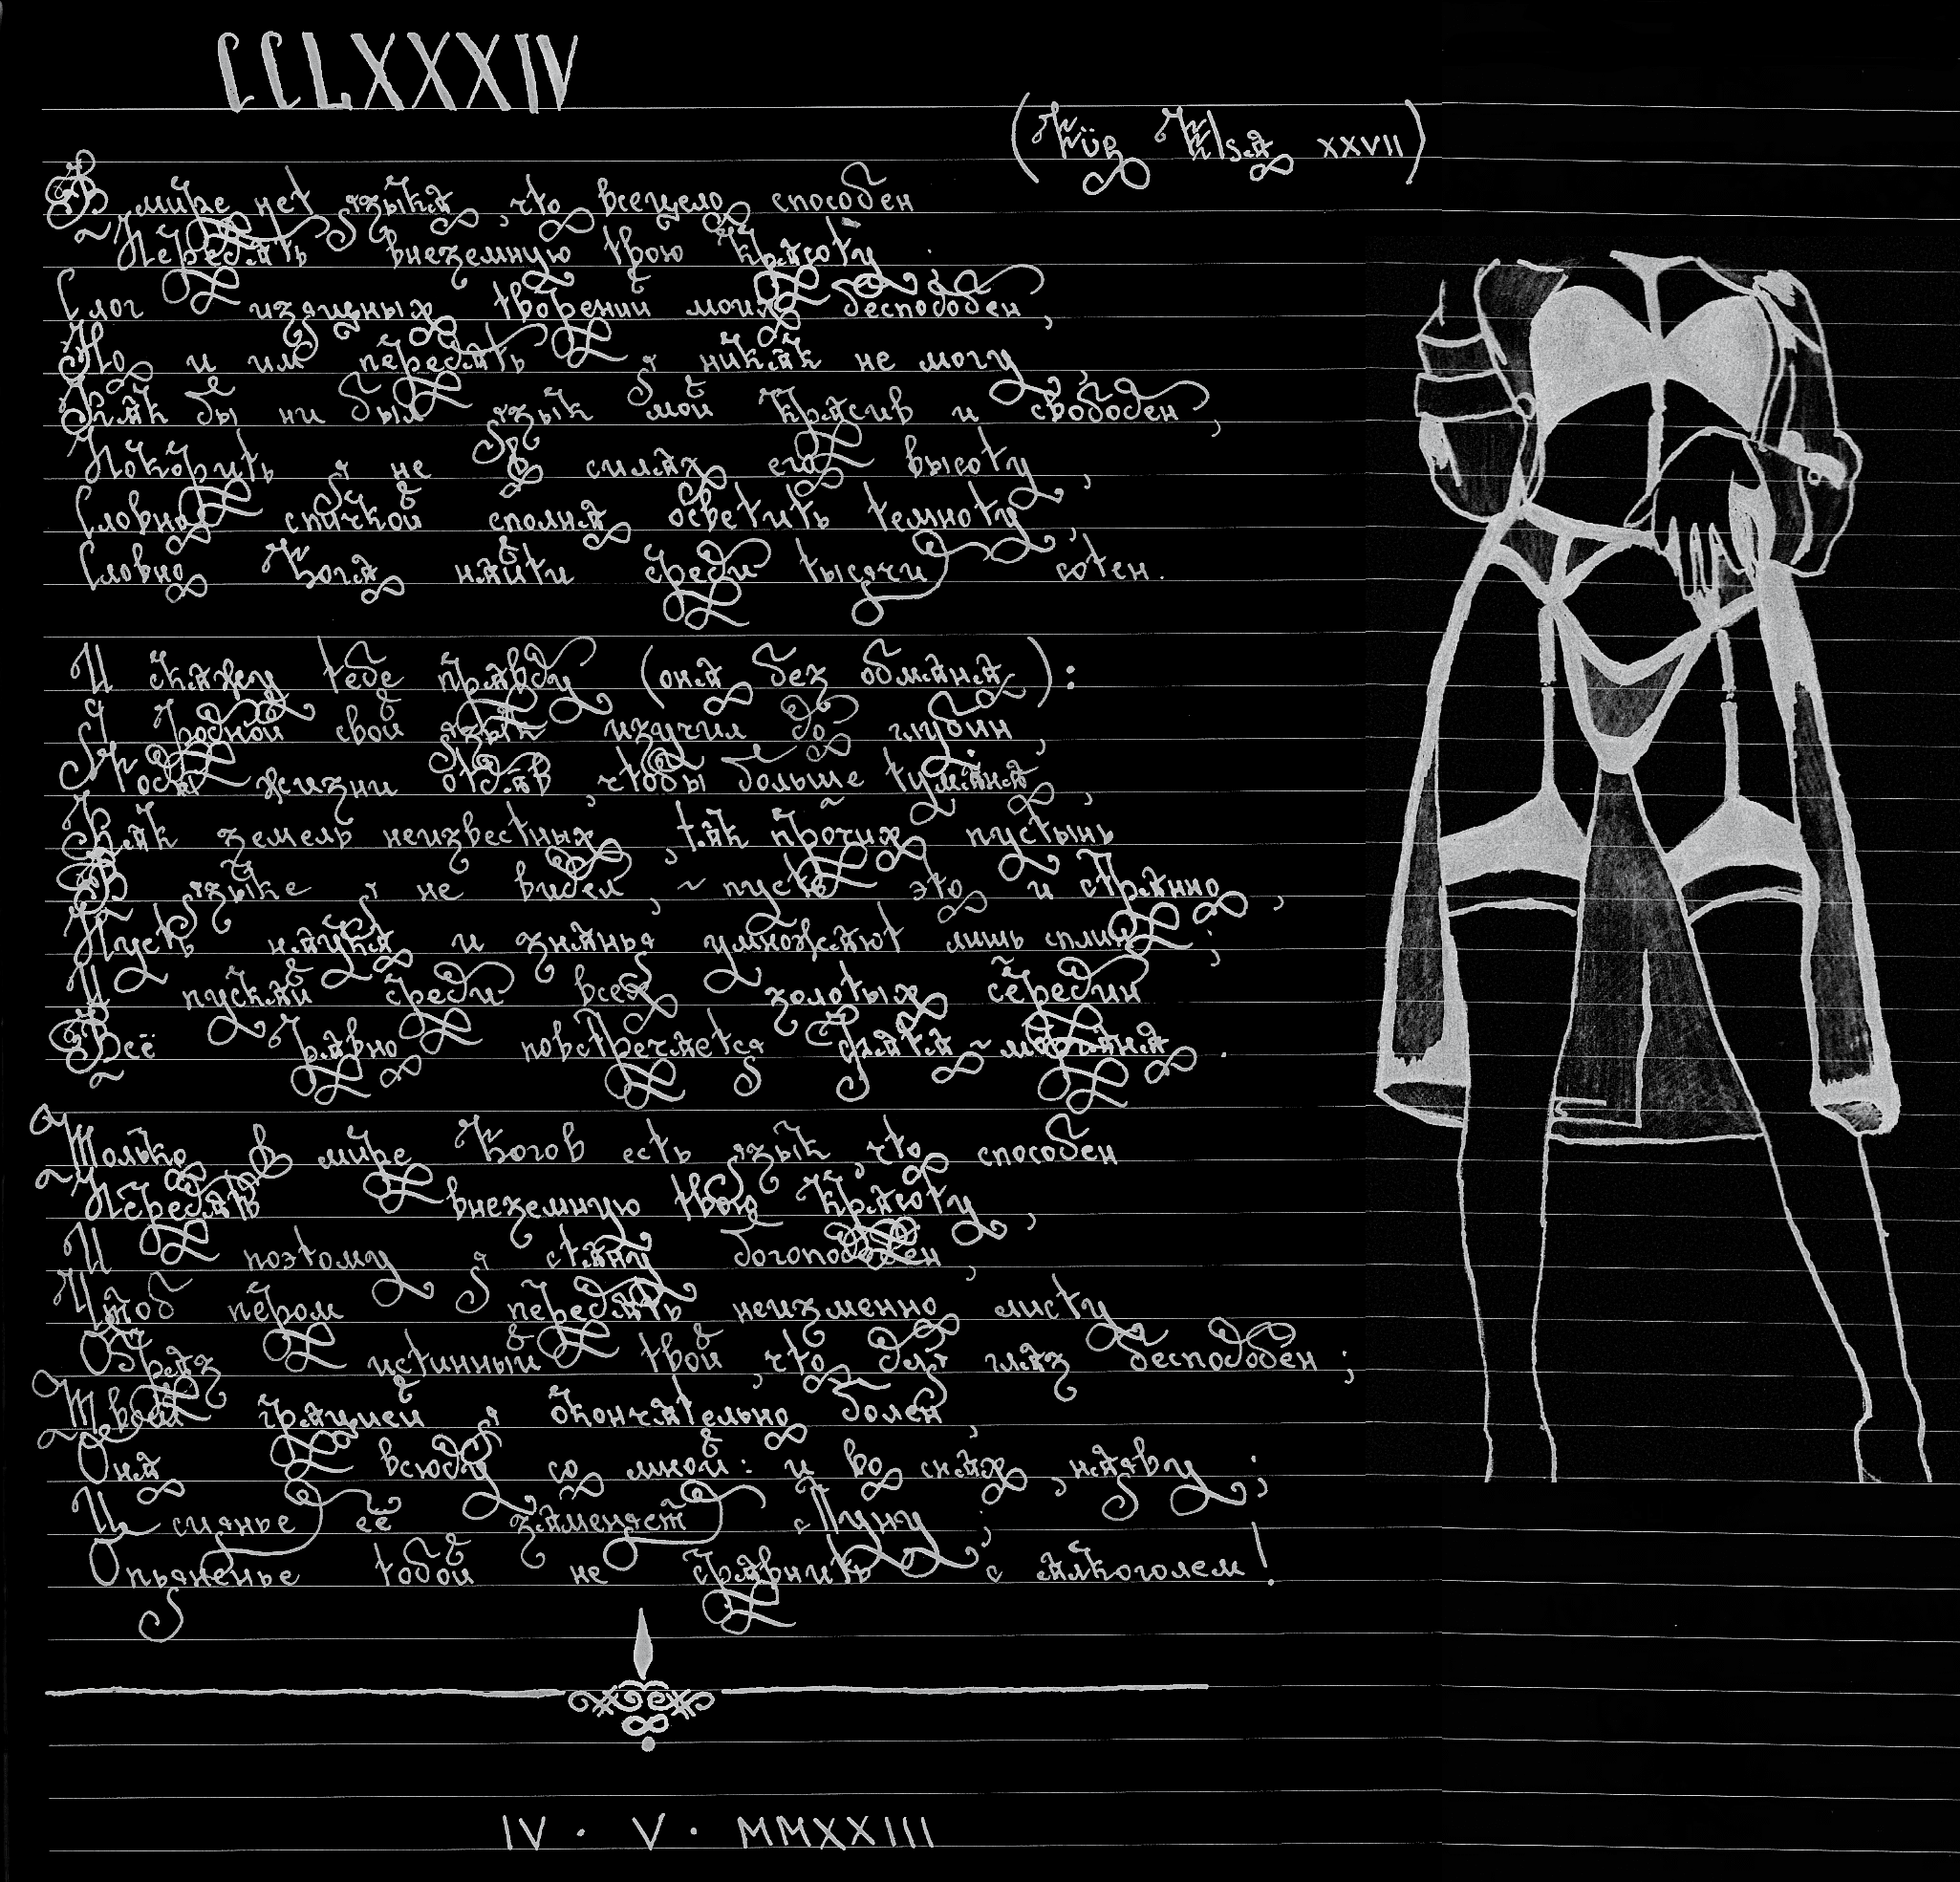 CCLXXXIV
(Für Elsa XXVII)
В мире нет языка, что всецело способен
Передать внеземную твою красоту.
Слог изящных творений моих бесподобен,
Но и им передать я никак не могу.
Как бы ни был язык мой красив и свободен,
Покорить я не в силах его высоту,
Словно спичкой сполна осветить темноту,
Словно Бога найти среди тысячи сотен.
И скажу тебе правду (она без обмана):
Я родной свой язык изучил до глубин,
Годы жизни отдав, чтобы больше тумана,
Как земель неизвестных, так прочих пустынь
В языке я не видел, ~ пусть это и странно,
Пусть наука и знанья умножают лишь сплин;
И пускай среди всех золотых середин
Всё равно повстречается фата~моргана.
Только в мире Богов есть язык, что способен
Передать внеземную твою красоту,
И поэтому я стану богоподобен,
Чтоб пером передать неизменно листу
Образ истинный твой, что для глаз бесподобен;
Твоей грацией я окончательно болен,
Она всюду со мной: и во снах, наяву;
И сиянье её заменяет Луну;
Опьяненье тобой не сравнить с алкоголем!
IV · V · MMXXIII